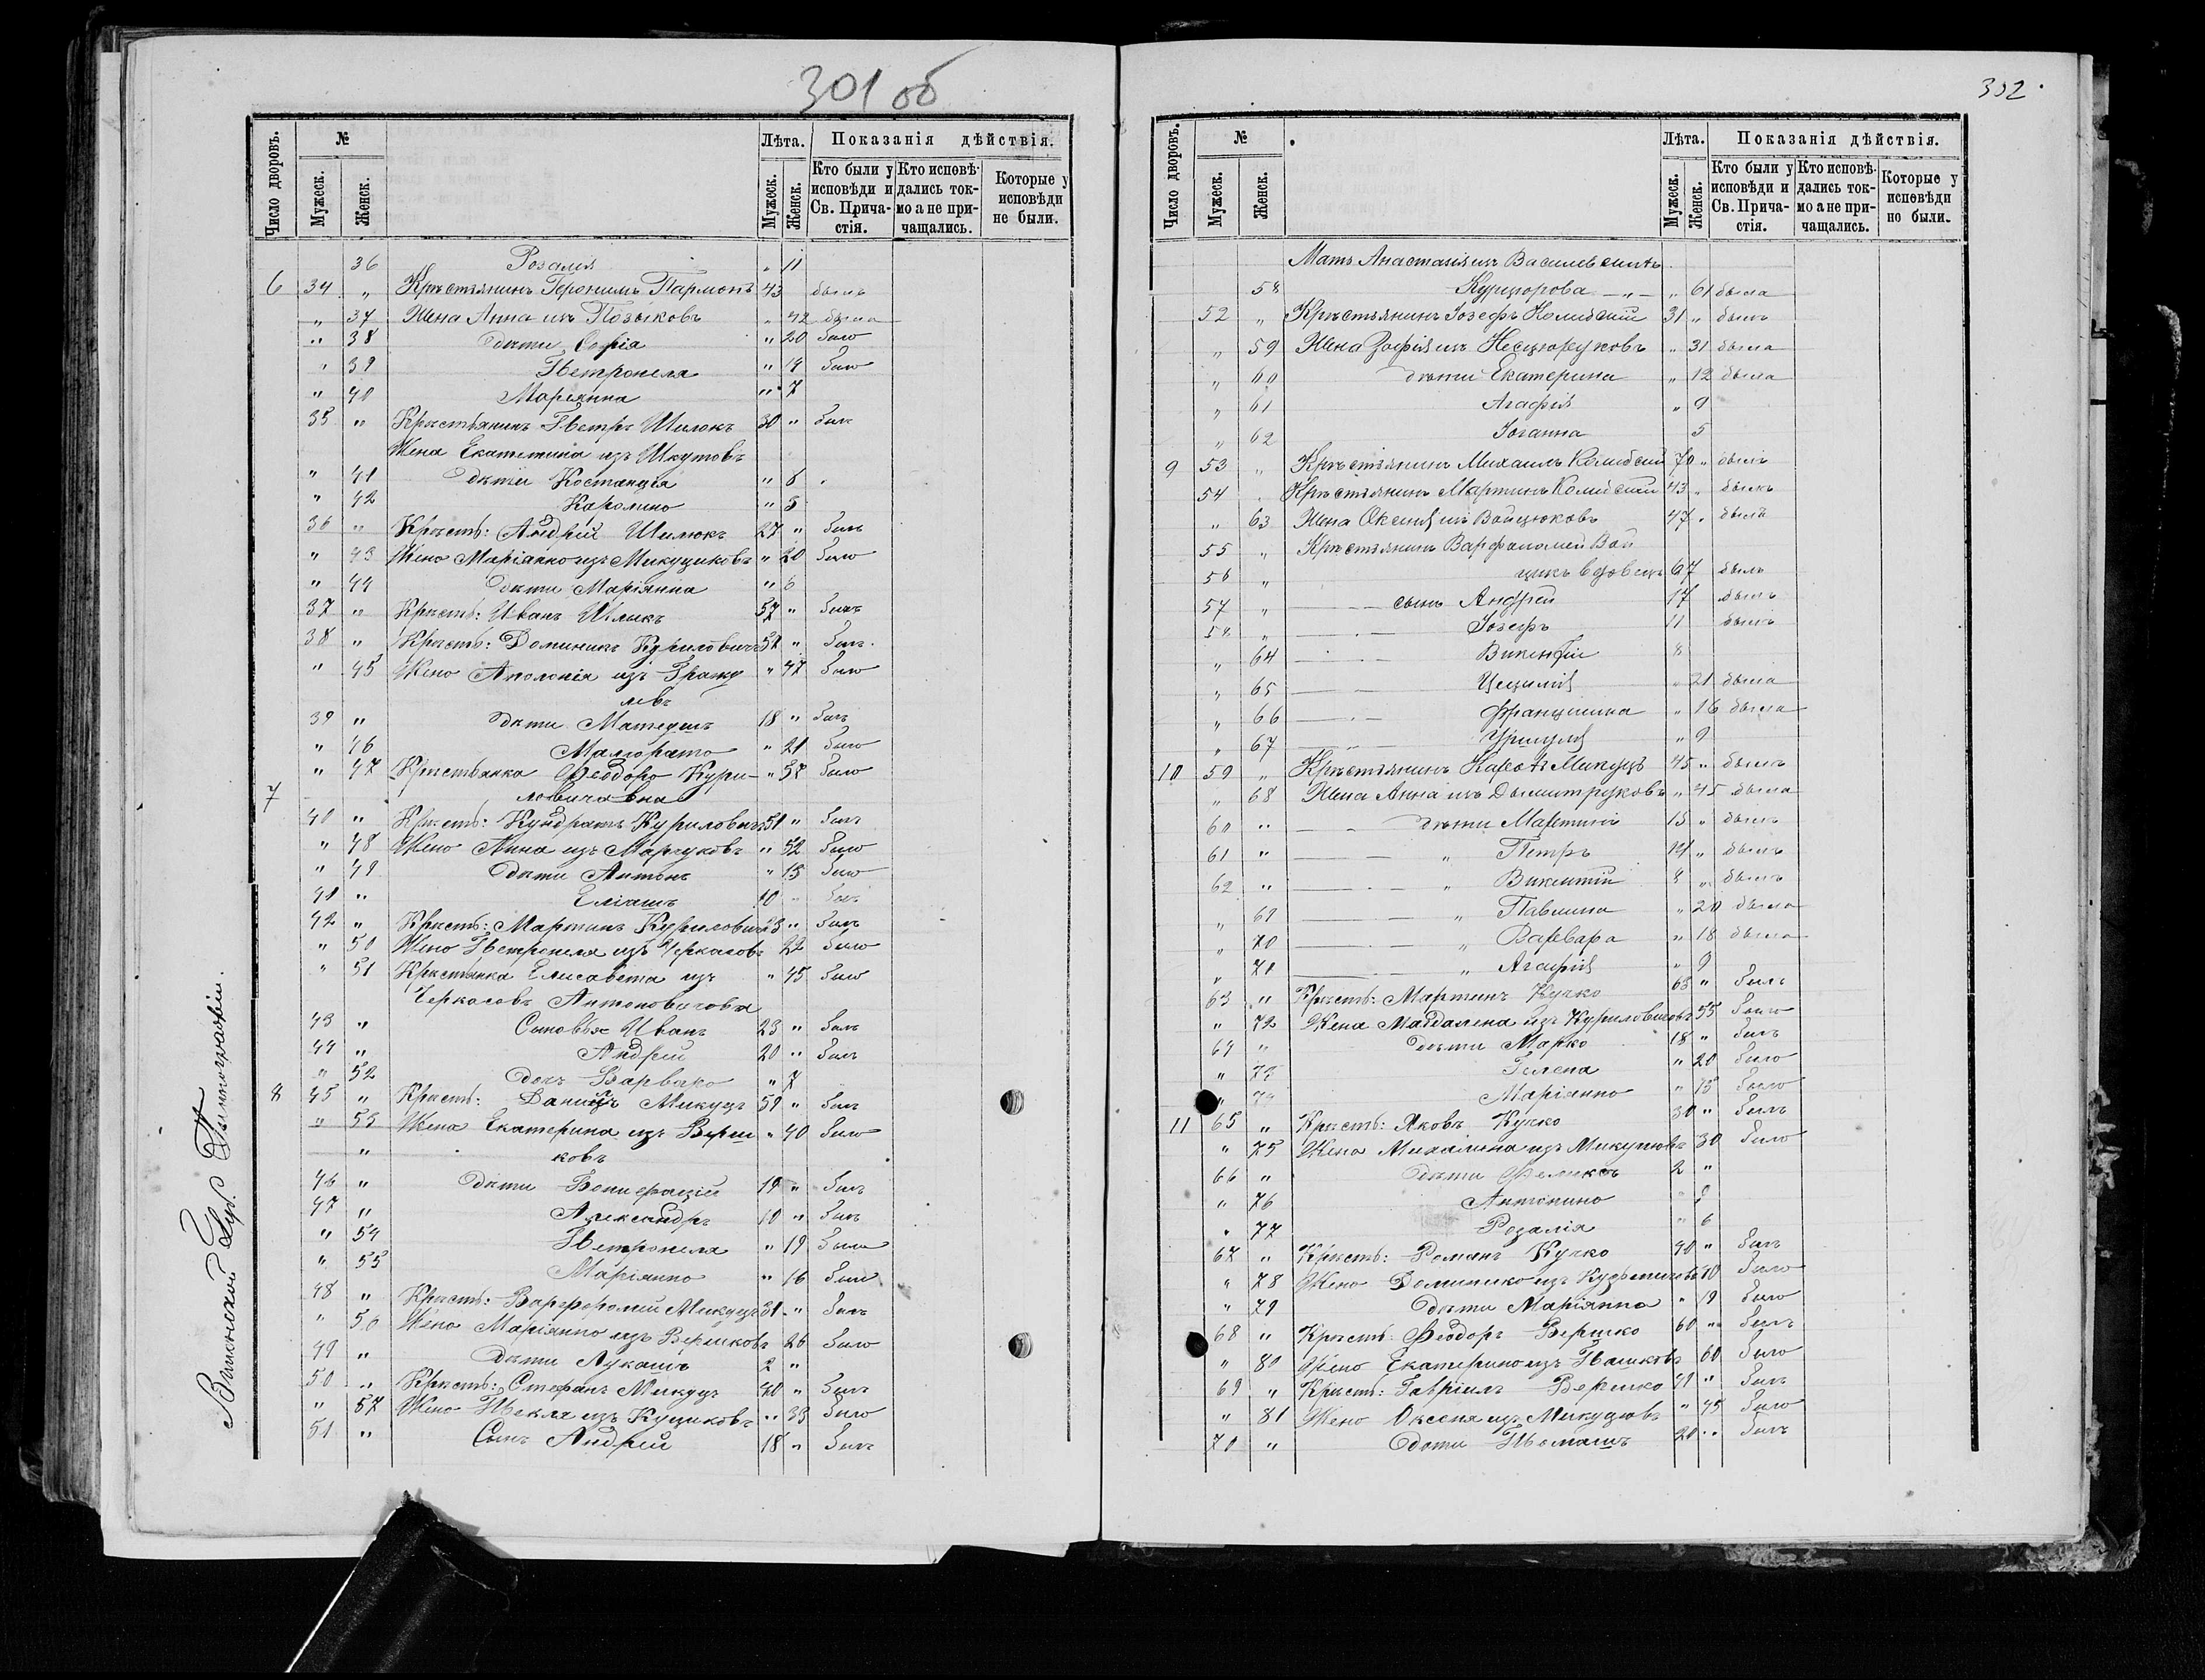 301 об
Число дворовъ. № Лѣта. Показанія дѣйствія.
Мужеск. Женск. Мужеск. Женск. Кто были у исповѣди и Св. Прича- стія. Кто исповѣ- дались ток- мо а не при- чащались. Которые у исповѣди не были.
36 Розалия " 11
6 34 " Крестьянинъ Геронимъ Пармонъ 43 былъ
" 37 Жена Анна изъ Позыковъ " 42 была
" 38 дѣти Софія " 20 было
" 39 Петронеля " 19 было
" 40 Маріянна " 7
35 " Крестьянинъ Петръ Шилокъ 30 " былъ
Жена Екатерина изъ Шкутовъ
" 41 дѣти Костанція " 8
" 42 Каролино " 3
36 " Крѣсть: Андрій Шилюкъ 27 " былъ
" 43 Жено Маріянно изъ Микуциковъ " 20 было
" 44 дѣти Маріянна " 6
37 " Крѣсть: Иванъ Шлыкъ 57 " былъ
38 " Крѣсть: Доминикъ Куриловичъ 52 " былъ
" 45 Жено Аполонія изъ Гражу " 47 было
левъ
39 " дѣти Матеушъ 18 " былъ
" 46 Малгорато " 21 было
" 47 Крестьянка Феодоро Кури- " 57 было
7 ловичавна
40 " Крѣсть: Кундратъ Куриловичъ 51 " былъ
" 48 Жено Анна изъ Марчуковъ " 52 было
" 49 дѣти Антонъ " 15 было
41 " Еліашъ 10 " былъ
42 " Крѣсть: Мартинъ Куриловичъ 23 " былъ
" 50 Жено Петронеля изъ Черкасовъ 22 было
" 51 Крестьянка Елисавета изъ " 45 было
Черкасовъ Антоновичова
43 " Сыновья Иванъ 23 " былъ
44 " Андрей 20 " былъ
" 52 Дочь Варваро " 7
8 45 " Крѣсть: Даніилъ Микуцъ 59 " былъ
" 53 Жена Екатерина изъ Верш " 40 было
" ковъ
46 " дѣти Бонифацій 19 " былъ
47 " Александръ 10 " былъ
" 54 Петронеля " 19 было
" 55 Маріянно " 16 было
48 " Крѣсть: Варфоромей Микуцъ 31 " былъ
" 56 Жено Маріянно изъ Вершковъ 26 было
49 " дѣти Лукашъ 2 "
50 " Крѣсть: Стефанъ Микуцъ 40 " былъ
" 57 Жено Текля изъ Куциковъ " 33 было
51 " Сынъ Андрей 18 " былъ
Виленской Губ. Типографіи.
302
Число дворовъ. № Лѣта. Показанія дѣйствія.
Мужеск. Женск. Мужеск. Женск. Кто были у исповѣди и Св. Прича- стія. Кто исповѣ- дались ток- мо а не при- чащались. Которые у исповѣди не были.
Мать Анастазія изъ
58 " 61 была
52 " Крѣстьянинъ Іозефъ Комисскій 31 " былъ
" 59 Жена Зофія изъ Несцюруковъ " 31 была
" 60 дѣти Екатерина " 12 была
" 61 Агафія " 9
" 62 Іоганна 5
9 53 " Крѣстьянинъ Михаилъ 70 " былъ
54 Крѣстьянинъ Мартинъ 43 " былъ
" 63 Жена Оксеня изъ Войцюковъ 47 " была
55 " Крѣстьянинъ Варфаломей Вой
56 " цикъ вдовецъ 67 былъ
57 " сынъ Андрей 17 былъ
58 " Іозефъ 11 былъ
" 64 Викентіи 8
" 65 Цецилія " 21 была
" 66 Францишка " 16 была
" 67 Уршуля " 9
10 59 " Крѣстьянинъ Кароль Микуцъ 45 " былъ
" 68 Жена Анна изъ Дымитруковъ " 45 была
60 " дѣти Мартинъ 15 " былъ
61 " " Петръ 14 " былъ
62 " " Викентій 8 " былъ
" 69 " Павлина " 20 была
" 70 " Варвара " 18 была
" 71 " Агафія " 9
63 " Крѣсть: Мартинъ Кучко 63 " былъ
" 72 Жена Магдалена изъ Куриловичовъ 55 было
64 " дѣти Марко 18 " былъ
" 73 Гелена " 20 было
" 74 Маріянно " 15 было
11 65 " Крѣсть: Яковъ Кучко 30 " былъ
" 75 Жена Михалина изъ Микуцювъ 30 было
66 " дѣти Феликсъ 2 "
" 76 Антонино " 8
" 77 Розалія " 6
67 " Крѣсть: Романъ Кучко 40 " былъ
" 78 Жено Доминико изъ Кузьмичовъ 40 было
" 79 дѣти Маріянна " 19 было
68 " Крѣсть: Феодоръ Вершко 60 " былъ
" 80 Жено Екатерино изъ Пашковъ 60 было
69 " Крѣсть: Гавріилъ Вершко 49 " былъ
" 81 Жено Оксеня изъ Микуцювъ " 45 было
70 " дѣти Томашъ 20 " былъ